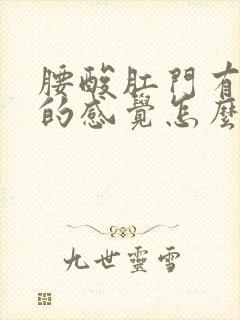 腰酸肛門有
的感覺怎麼
九世靈雪